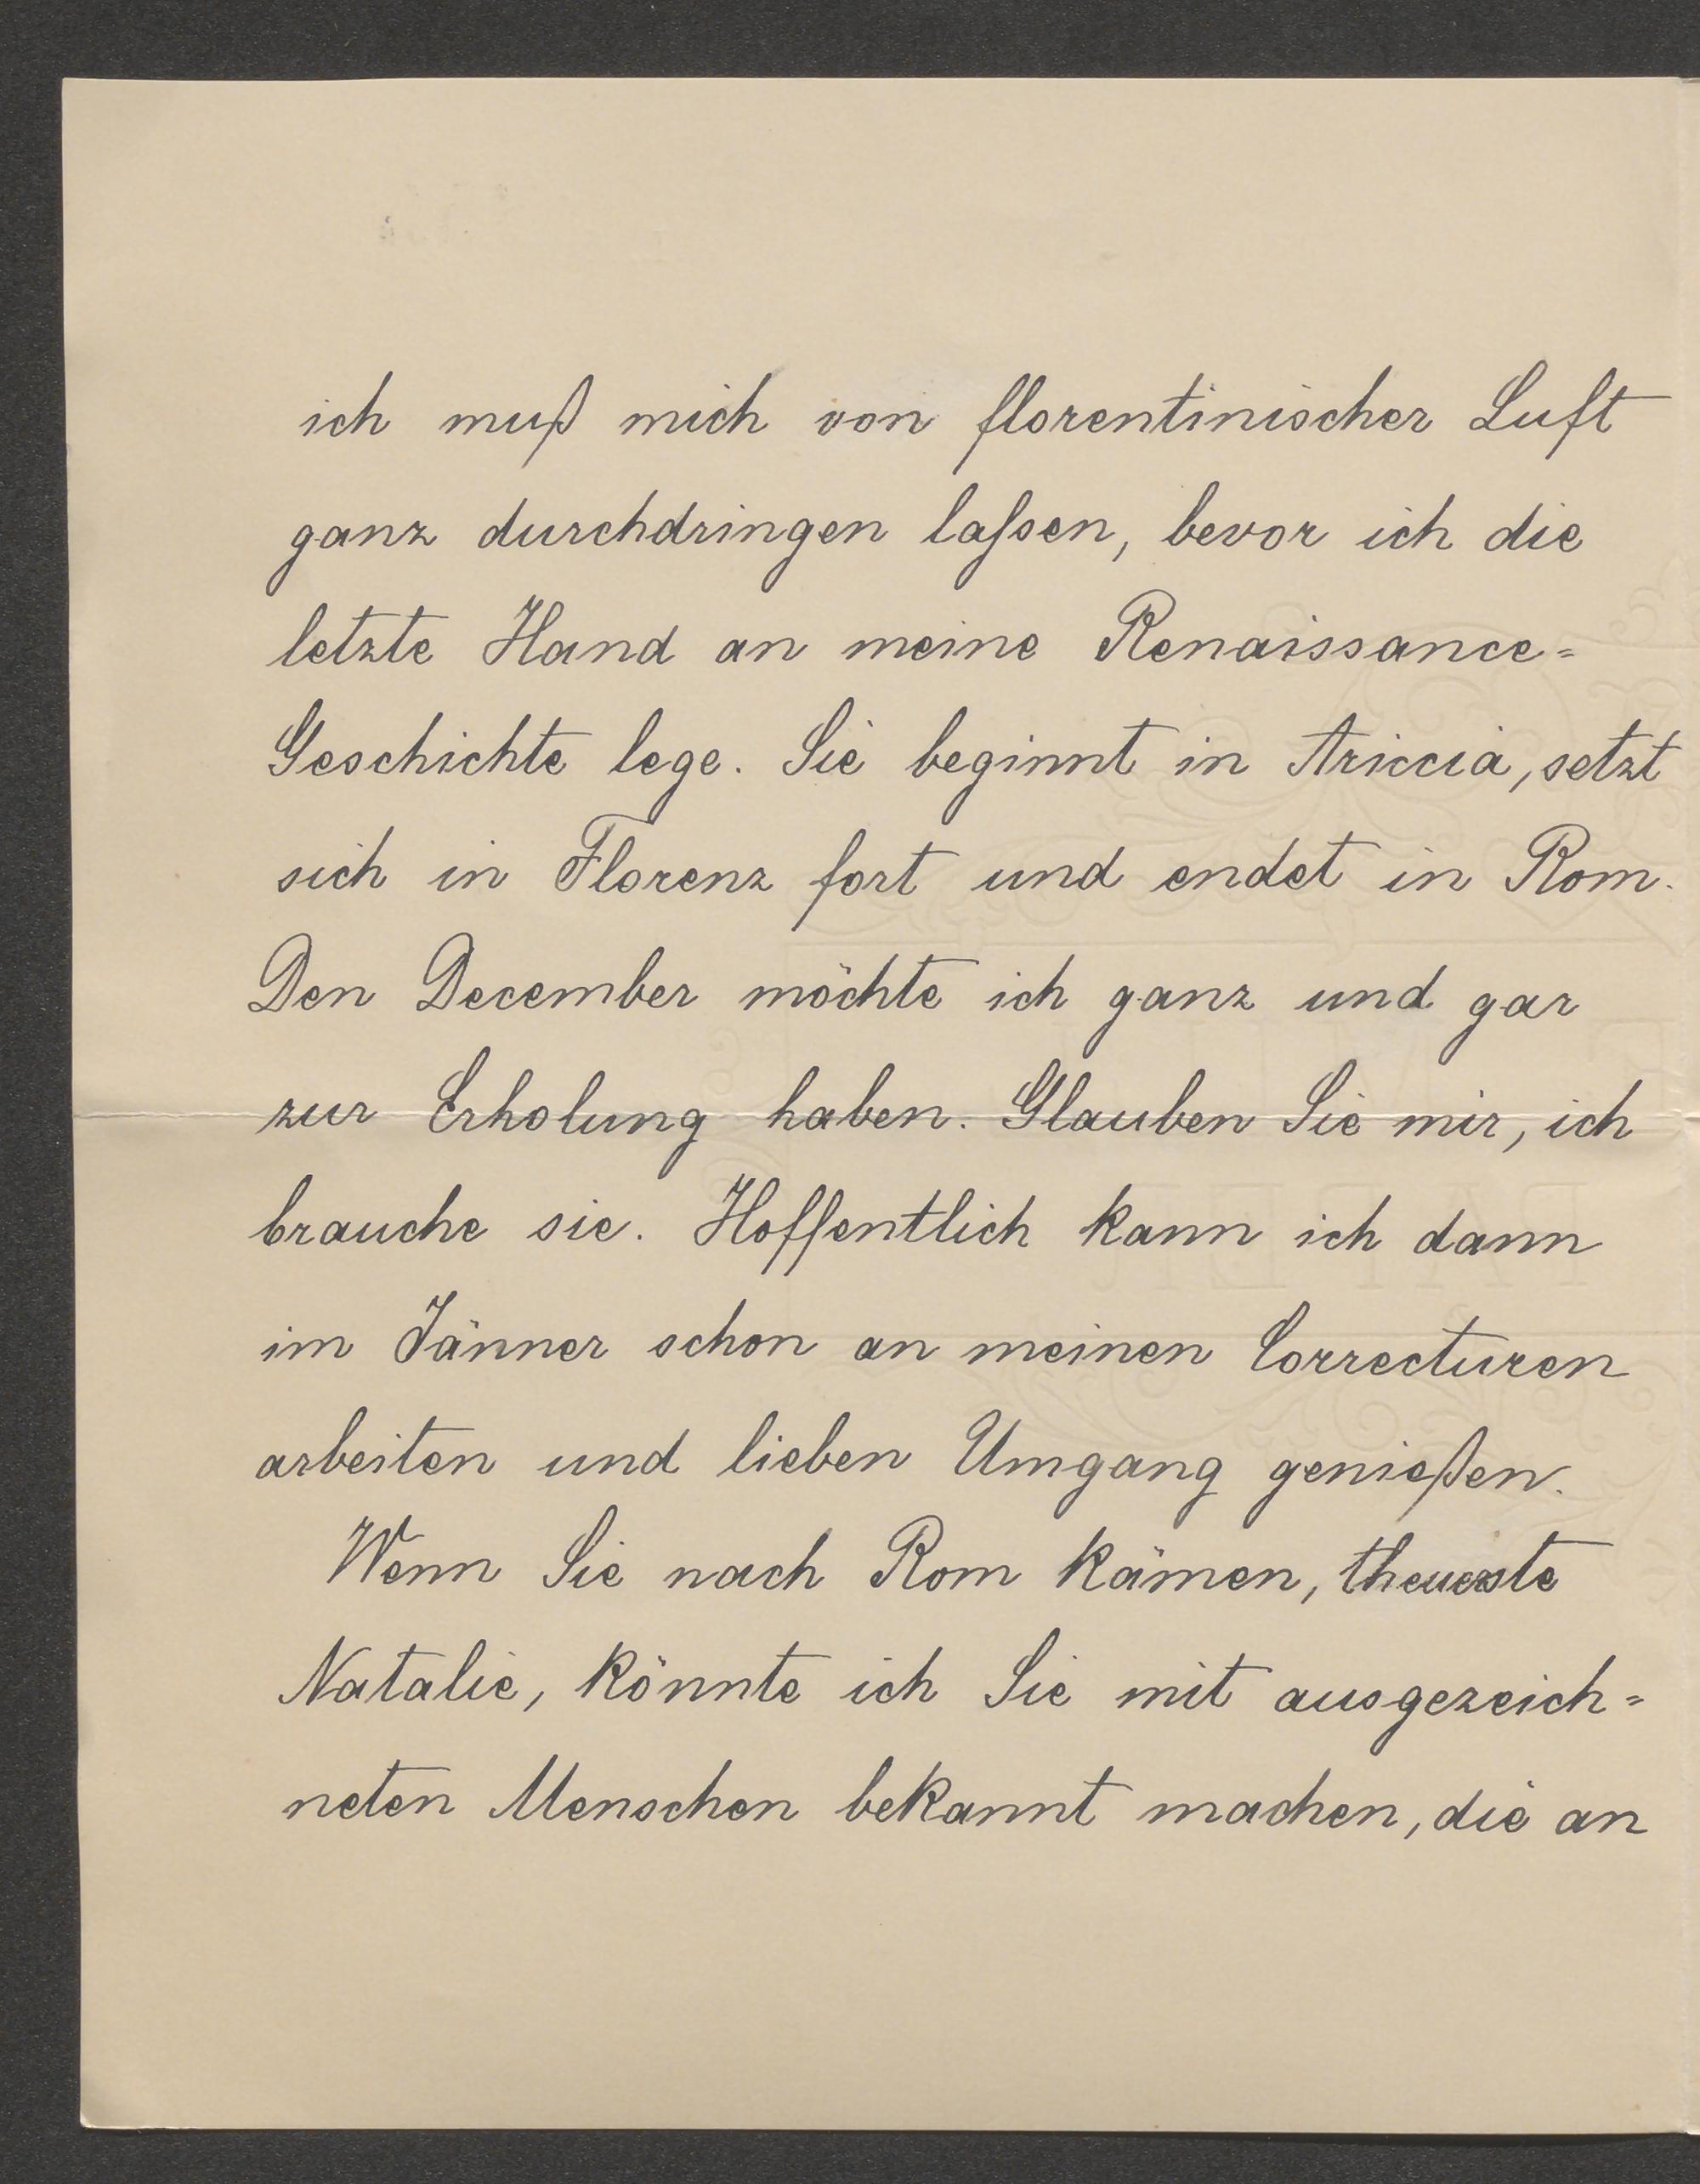 ich muß mich von florentinischer Luft
ganz durchdringen laſsen, bevor ich die
letzte Hand an meine Renaissance=
Geschichte lege. Sie beginnt in Ariccia, setzt
sich in Florenz fort und endet in Rom.
Den December möchte ich ganz und gar
zur Erholung haben. Glauben Sie mir, ich
brauche sie. Hoffentlich kann ich dann
im Jänner schon an meinen Correcturen
arbeiten und lieben Umgang genießen.
Wenn Sie nach Rom kämen, theuerste
Natalie, könnte ich Sie mit ausgezeich=
neten Menschen bekannt machen, die an